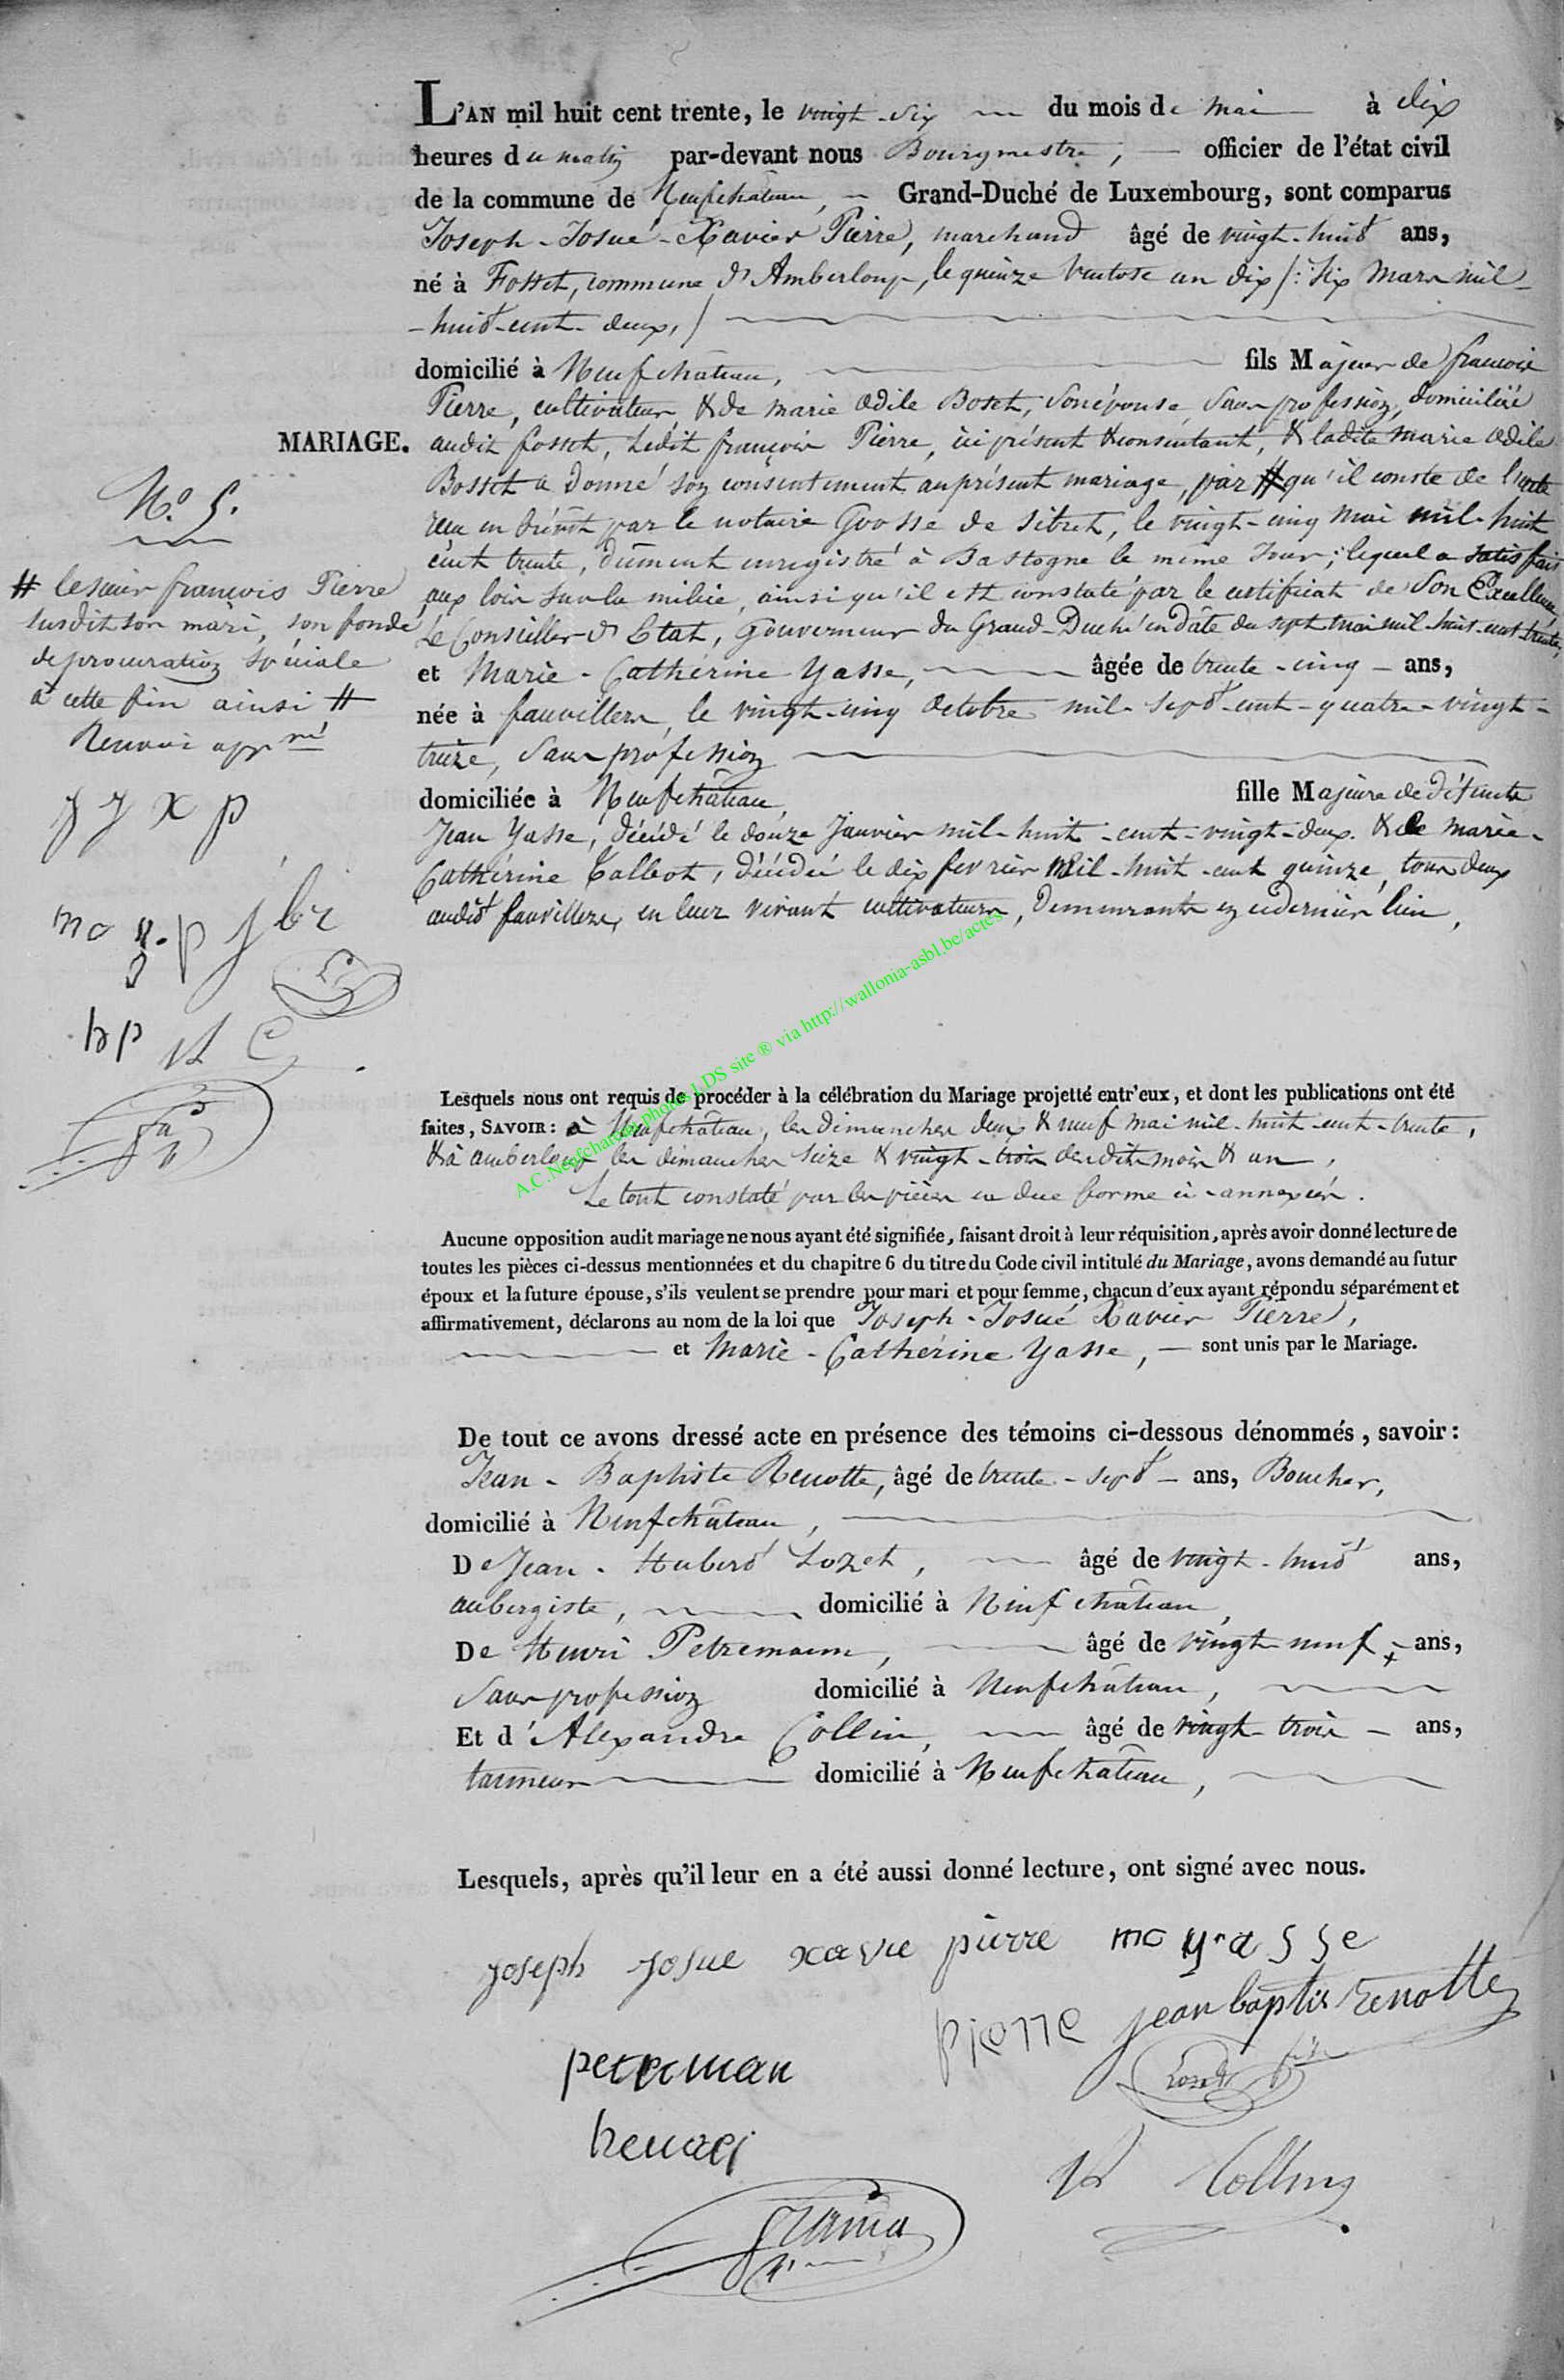 L'AN mil huit cent trente, le vingt-six du mois de mai à dix
heures du matin par-devant nous Bourgmestre, officier de l'état civil
de la commune de Neufchâteau, Grand-Duché de Luxembourg, sont comparus
Joseph-Josué-Xavier Pierre, marchand âgé de vingt-huit ans,
né à Fosset, commune d'Amberloup, le quinze ventose an dix /: six mars mil-
-huit-cent-deux, /
domicilié à Neufchâteau, fils Majeur de françois
Pierre, cultivateur, & de marie Odile Boset, son épouse, sans profession, domiciliés
MARIAGE. audit fosset, ledit françois Pierre, ici présent & consentant, & ladite marie Odile
Bosset a donné son consentement au présent mariage, par # qu'il conste de l'acte
reçu en brévet par le notaire Gosse de Sibret, le vingt-cinq mai mil-huit
cent trente, dûment enregistré à Bastogne le même jour; lequel a satisfait
aux lois sur la milice, ainsi qu'il est constaté par le certificat de Son Excellence
Le Conseiller d'Etat, Gouverneur du Grand-Duché en date du sept mai mil-huit-cent-trente,
et Marie-Cathérine Yasse, âgée de trente-cinq ans,
née à fauvillers, le vingt-cinq Octobre mil-sept-cent-quatre-vingt-
treize, sans profession
domiciliée à Neufchâteau, fille Majeure de défunts
Jean Yasse, décédé le douze Janvier mil-huit-cent-vingt-deux. & de Marie-
Cathérine Talbot, décédée le dix fevrier Mil-huit-cent quinze, tous deux
audit fauvillers, en leur vivant cultivateurs, demeurants en ce dernier lieu,
N.º 5.
# le sieur françois Pierre
susdit son mari, son fondé
de procuration spéciale
à cette fin ainsi #
Renvoi appr né
J J x p
mc y. p J br
hp
Lesquels nous ont requis de procéder à la célébration du Mariage projetté entr'eux, et dont les publications ont été
faites, SAVOIR: à Neufchâteau, les dimanches deux & neuf mai mil-huit-cent-trente,
& à amberloup les dimanches seize & vingt-trois desdits mois & an,
Le tout constaté par les pièces en due forme ci-annexées.
Aucune opposition audit mariage ne nous ayant été signifiée, faisant droit à leur réquisition, après avoir donné lecture de
toutes les pièces ci-dessus mentionnées et du chapitre 6 du titre du Code civil intitulé du Mariage, avons demandé au futur
époux et la future épouse, s'ils veulent se prendre pour mari et pour femme, chacun d'eux ayant répondu séparément et
affirmativement, déclarons au nom de la loi que Joseph-Josué Xavier Pierre,
et Marie-Cathérine Yasse, sont unis par le Mariage.
De tout ce avons dressé acte en présence des témoins ci-dessous dénommés, savoir:
Jean-Baptiste Renotte, âgé de trente-sept ans, Boucher,
domicilié à Neufchâteau,
De Jean-Hubert Lozet, âgé de vingt-huit ans,
aubergiste, domicilié à Neufchâteau,
De Henri Petremann, âgé de vingt-neuf ans,
Sans profession domicilié à Neufchâteau,
Et d'Alexandre Collin, âgé de vingt-trois ans,
tanneur domicilié à Neufchâteau,
Lesquels, après qu'il leur en a été aussi donné lecture, ont signé avec nous.
joseph josue xavie pierre mc yasse
pierre jean baptis renotte
peterman
Collin
A.C.Neufchateau photos LDS site ® via http://wallonia-asbl.be/actes